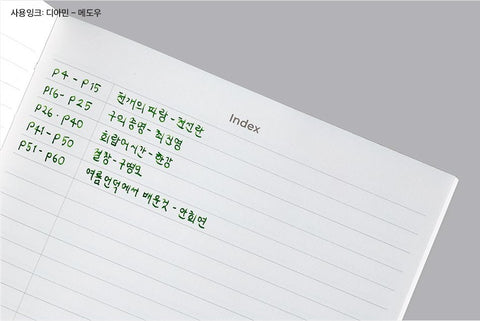 사용잉크: 디아민 - 메도우
Index
P4 - P15 천개의 파랑 - 천선란
P16 - P25 구의 증명 - 최진영
P26 - P40 희랍어시간 - 한강
P41 - P50 절창 - 구병모
P51 - P60 여름언덕에서 배운것 - 안희연